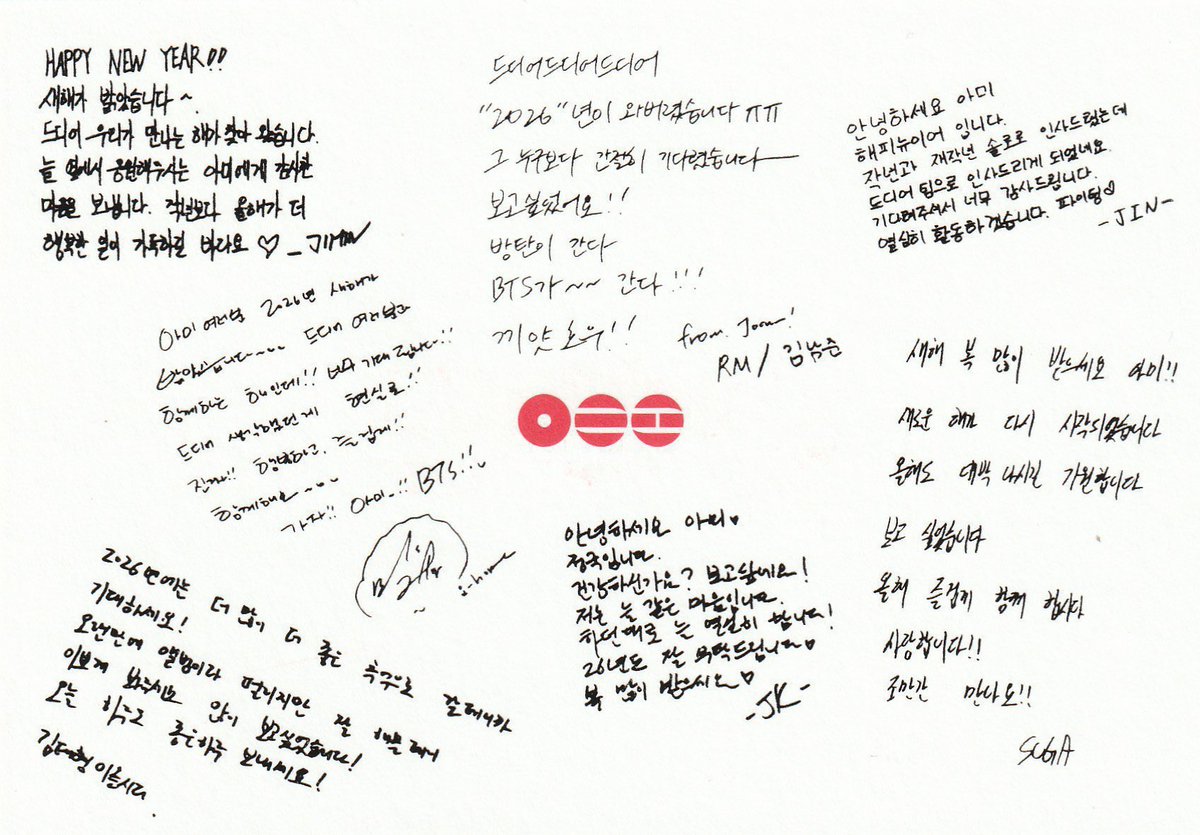 HAPPY NEW YEAR!!
새해가 밝았습니다~
드디어 우리가 만나는 해가 찾아 왔습니다.
늘 옆에서 응원해주시는 아미에게 감사한
마음을 보냅니다. 작년보다 올해가 더
행복한 일이 가득하길 바라요 ♡ _JIMIN
드디어드디어드디어
"2026"년이 와버렸습니다 ㅠㅠ
그 누구보다 간절히 기다렸습니다
보고싶었어요!!
방탄이 간다
BTS가~~ 간다!!!
끼얏호우!!
from. Joon!
RM / 김남준
안녕하세요 아미
해피뉴이어 입니다.
작년과 재작년 솔로로 인사드렸는데
드디어 팀으로 인사드리게 되었네요.
기다려주셔서 너무 감사드립니다.
열심히 활동하겠습니다. 파이팅♡
-JIN-
아미 여러분 2026년 새해가
밝았습니다~~~ 드디어 여러분과
함께하는 해인데!! 너무 기대 됩니다!!
드디어 생각했던게 현실로!!
진짜!! 행복하고, 즐겁게!!
함께해요~~~
가자!! 아미!! BTS!!
j-hope
새해 복 많이 받으세요 아미!!
새로운 해가 다시 시작되었습니다
올해도 대박 나시길 기원합니다
보고 싶었습니다
올해 즐겁게 함께 합시다
사랑합니다!!
조만간 만나요!!
SUGA
2026년에는 더 많이 더 좋은 추억으로 갈테니까
기대하세요!
오랜만에 앨범이라 떨리지만 잘 해볼테니
이쁘게 봐주시요 많이 보고싶었습니다!
오늘 하루도 좋은하루 보내세요!
김태형 이올시다.
안녕하세요 아미♥
정국입니다.
건강하신가요? 보고싶네요!
저는 늘 같은 마음입니다.
하던대로 늘 열심히 합니다!
26년도 잘 부탁드립니다♥
복 많이 받으세요♥
-JK-